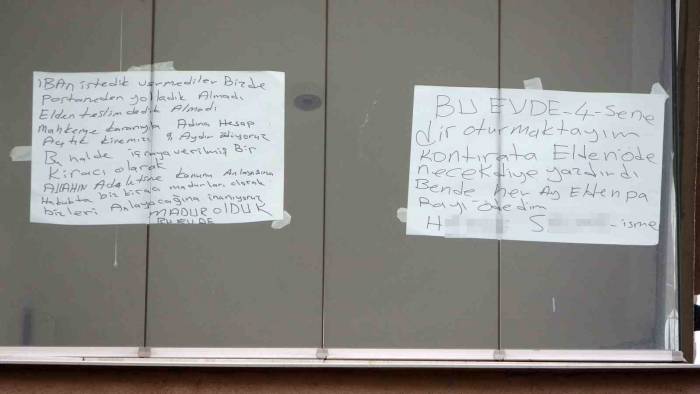 IBAN istedik vermediler Bizde
Postaneden yolladık Almadı
Elden teslim dedik Almadı
Mahkeme kararıyla Adına Hesap
Açtık kiremizi Aydır ödiyoruz
Bu halde icraya verilmiş Bir
kiracı olarak
AllAHIN Adaletine kanunu Anlayışına
Hukukta biz kiracı madurları olarak
bizleri Anlayacağına inanıyoruz
MADUR OLDUK
BU EVDE
BU EVDE-4-Sene
dir oturmaktayım
kontırata Elden öde
necek diye yazdırdı
Bende her Ay Elden pa
Rayı ödedim
H S -isme